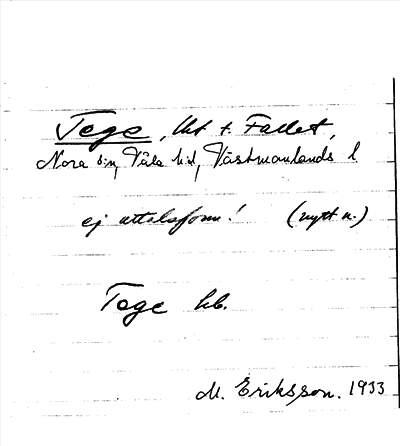 Tege, lht t. Fallet,
Nora sn, Våla hd, Västmanlands l
ej uttalsform! (nytt n.)
Tege hb.
M. Eriksson. 1933